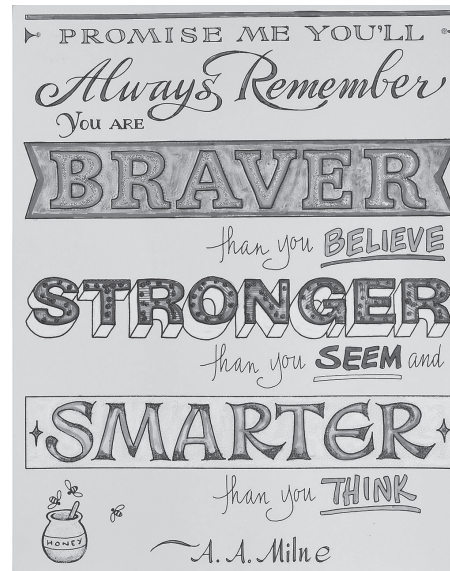 PROMISE ME YOU'LL
Always Remember
You ARE
BRAVER
than you BELIEVE
STRONGER
than you SEEM and
SMARTER
than you THINK
HONEY
A. A. Milne